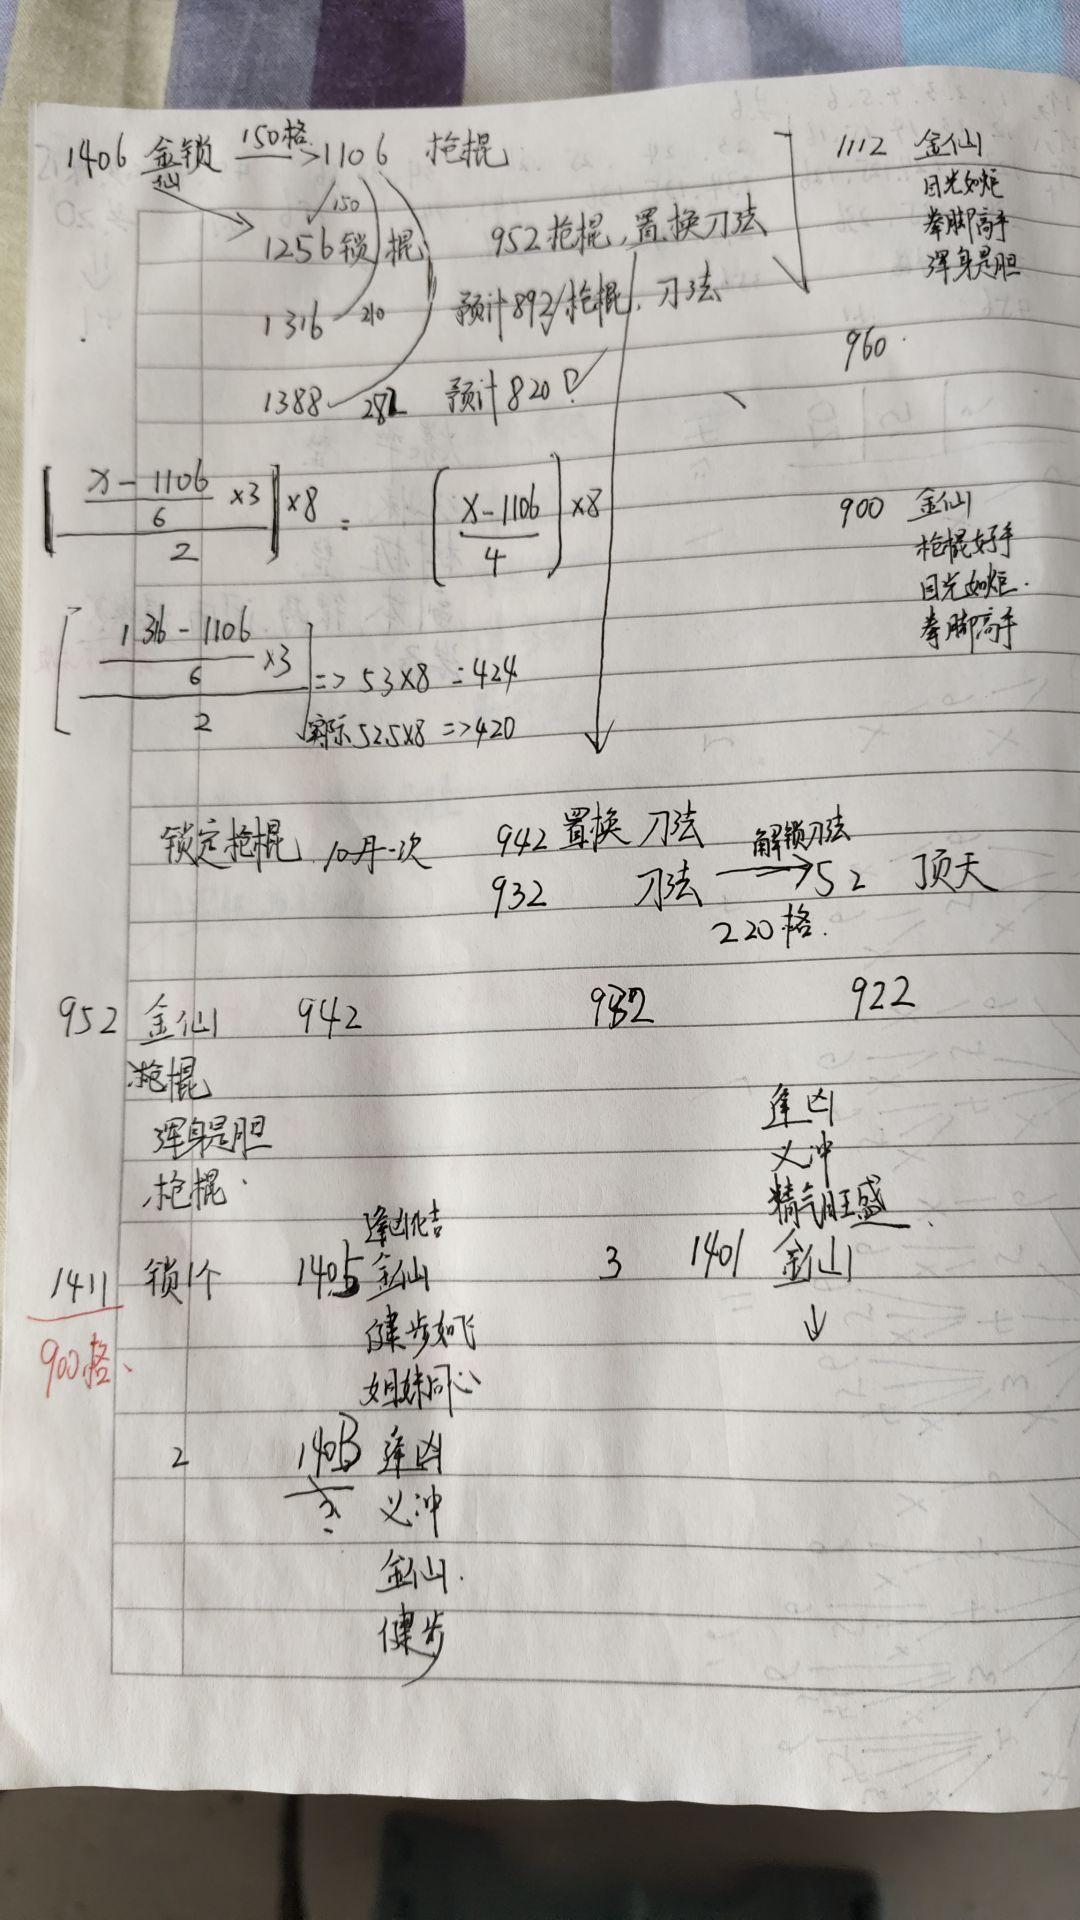 1406 金锁 150格 → 1106 枪棍
仙
150
1256 锁 棍 952 枪棍, 置换刀法
1316 210 预计892/枪棍, 刀法
1388 282 预计820
1112 金仙
目光如炬
拳脚高手
浑身是胆
960
[ (x-1106)/6 ×3 / 2 ] ×8 = ( (x-1106)/4 ) ×8
900 金仙
枪棍好手
目光如炬
拳脚高手
[ (1316-1106)/6 ×3 / 2 ] => 53×8 = 424
实际 52.5×8 => 420
锁定枪棍, 10月一次 942 置换 刀法
932 刀法 解锁刀法 → 52 顶天
220格.
952 金仙 942 932 922
枪棍
浑身是胆
枪棍
逢凶
义冲
精气旺盛
1411 锁1个 1405 逢凶化吉
金仙
健步如飞
姐妹同心
3 1401 金仙
900格
2 1403 逢凶
义冲
金仙
健步